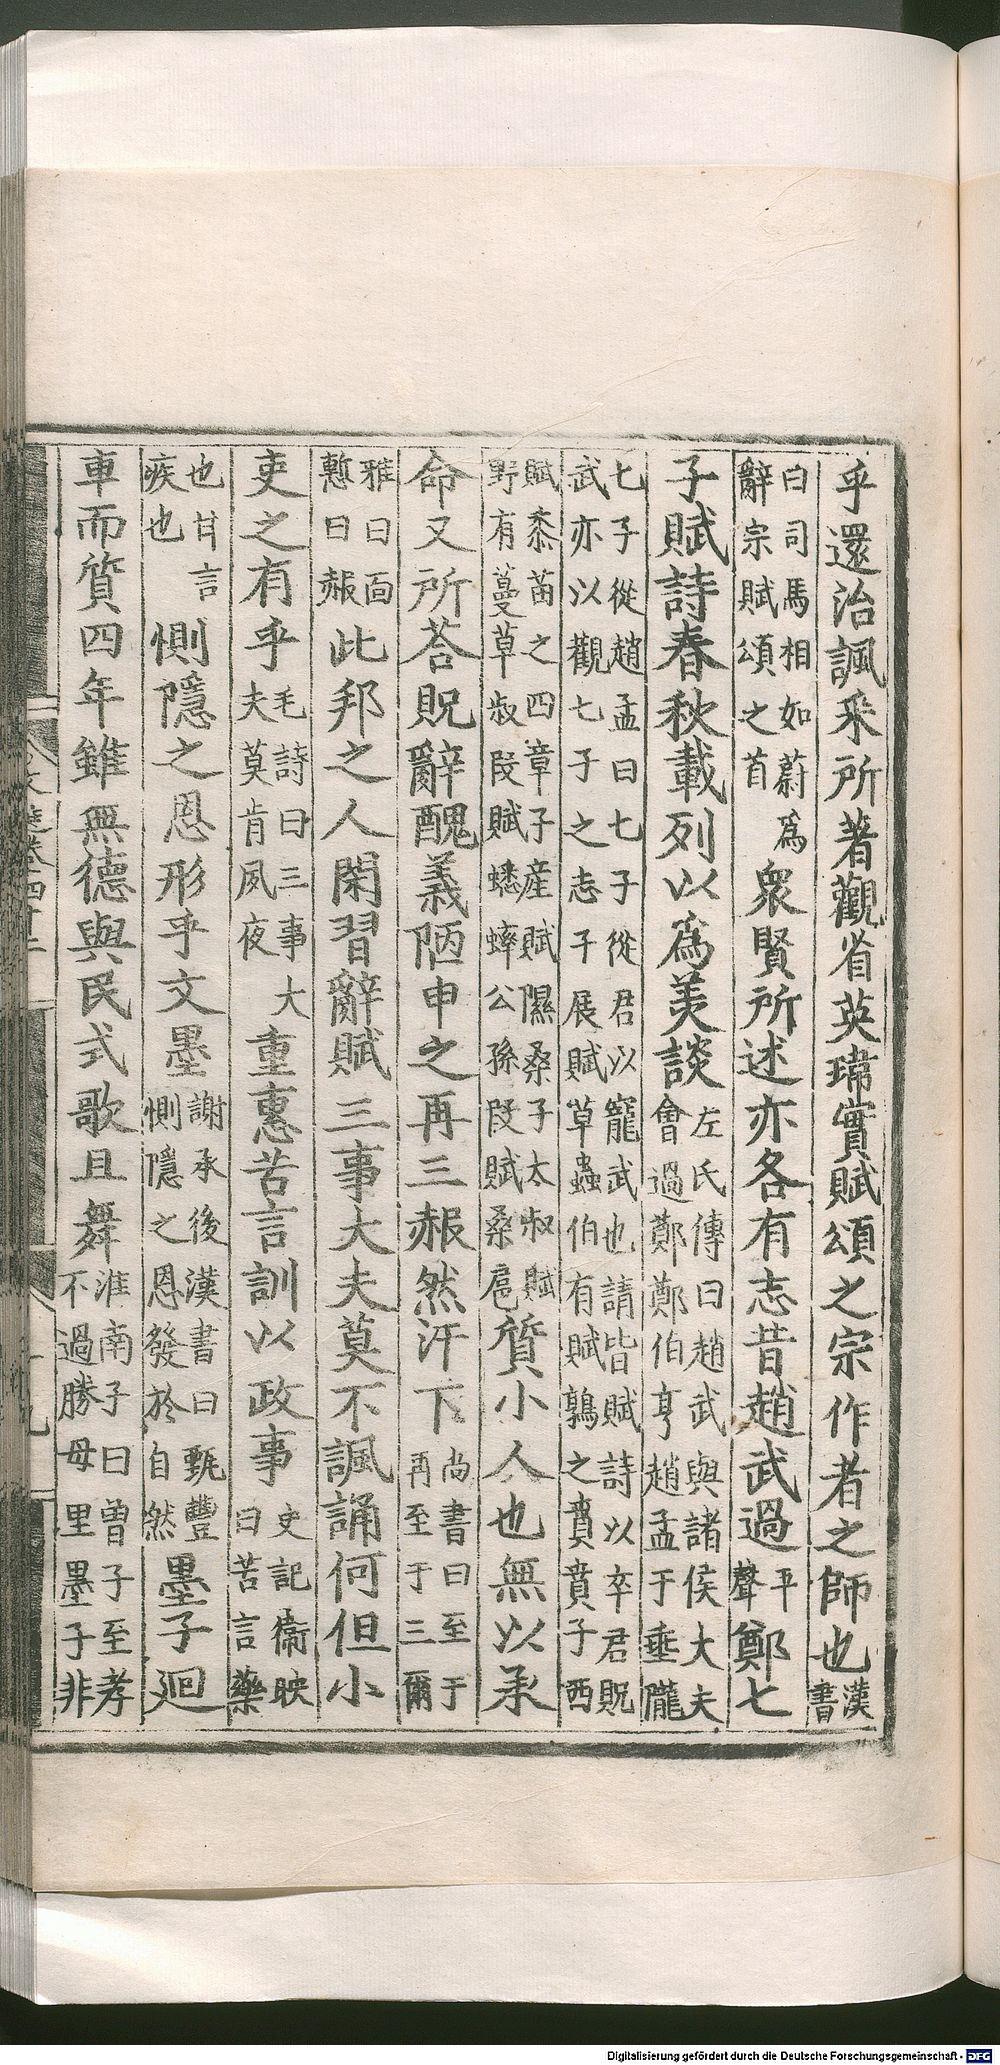 乎還治諷采所著觀省英瑋實賦頌之宗作者之師也漢書
曰司馬相如蔚為辭宗賦頌之首衆賢所述亦各有志昔趙武過平聲鄭七
子賦詩春秋載列以為美談左氏傳曰趙武與諸侯大夫會過鄭鄭伯亨趙孟于垂隴
七子從趙孟曰七子從君以寵武也請皆賦詩以卒君貺武亦以觀七子之志子展賦草蟲伯有賦鶉之賁賁子西
賦黍苗之四章子產賦隰桑子太叔賦野有蔓草叔段賦蟋蟀公孫段賦桑扈質小人也無以承
命又所荅貺辭醜義陋申之再三赧然汗下尚書曰至于再至于三爾
雅曰面慙曰赧此邦之人閑習辭賦三事大夫莫不諷誦何但小
吏之有乎毛詩曰三事大夫莫肯夙夜重惠苦言訓以政事史記衞鞅曰苦言藥
也甘言疾也惻隱之恩形乎文墨謝承後漢書曰甄豐惻隱之恩發於自然墨子迴
車而質四年雖無德與民式歌且舞淮南子曰曾子至孝不過勝母里墨子非
文選卷四十二
十九
Digitalisierung gefördert durch die Deutsche Forschungsgemeinschaft - DFG